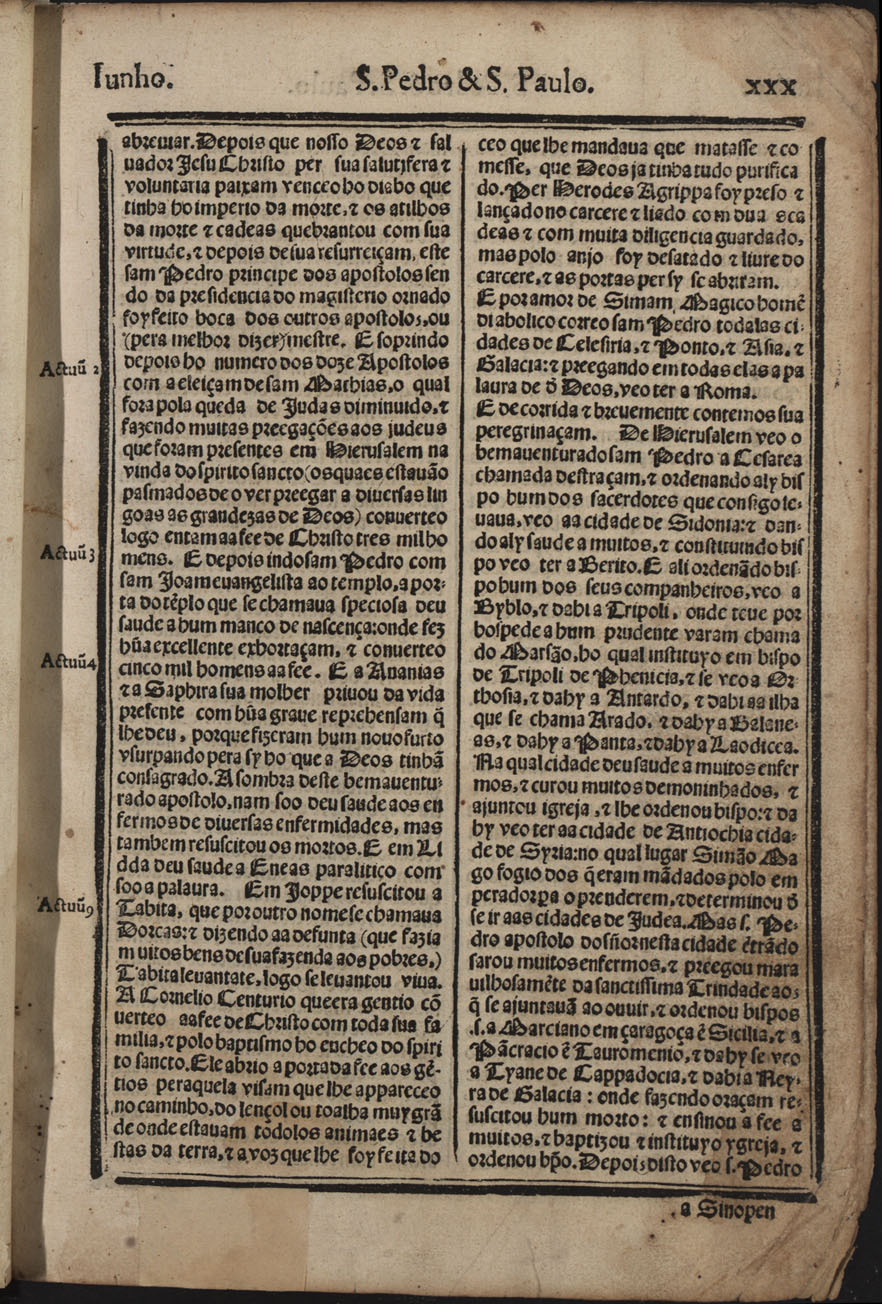 Iunho.
S. Pedro & S. Paulo.
xxx
abreuiar. Depois que nosso Deos ⁊ sal
uador Jesu Christo per sua salutifera ⁊
voluntaria paixam venceo ho diabo que
tinha ho imperio da morte, ⁊ os atilhos
da morte ⁊ cadeas quebrantou com sua
virtude, ⁊ depois de sua resurreiçam, este
sam Pedro principe dos apostolos sen
do da presidencia do magisterio ornado
foy feito boca dos outros apostolos, ou
(pera melhor dizer) mestre. E soprindo
Actuũ 2
depois ho numero dos doze Apostolos
com a eleiçam de sam Mathias, o qual
fora pola queda de Judas diminuido, ⁊
fazendo muitas preegações aos judeus
que foram presentes em Hierusalem na
vinda do spirito sancto (os quaes estauão
pasmados de o ver preegar a diuersas lin
goas as grandezas de Deos) conuerteo
logo entam aa fee de Christo tres mil ho
Actuũ 3
mens. E depois indo sam Pedro com
sam Joam euangelista ao templo, a por-
ta do tẽplo que se chamaua speciosa deu
saude a hum manco de nascença: onde fez
hũa excellente exhortaçam, ⁊ conuerteo
Actuũ 4
cinco mil homens aa fee. E a Ananias
⁊ a Saphira sua molher priuou da vida
presente com hũa graue reprehensam q̃
lhe deu, porque fizeram hum nouo furto
vsurpando pera sy ho que a Deos tinhã
consagrado. A sombra deste bemauentu-
rado apostolo, nam soo deu saude aos en
fermos de diuersas enfermidades, mas
tambem resuscitou os mortos. E em Li
dda deu saude a Eneas paralitico com
soo a palaura. Em Joppe resuscitou a
Actuũ 9
Tabita, que por outro nome se chamaua
Dorcas: ⁊ dizendo aa defunta (que fazia
muitos bens de sua fazenda aos pobres,)
Tabita leuantate, logo se leuantou viua.
A Cornelio Centurio que era gentio cõ
uerteo aa fee de Christo com toda sua fa
milia, ⁊ polo baptismo ho encheo do spiri
to sancto. Ele abrio a porta da fee aos gẽ-
tios per aquela visam que lhe appareceo
no caminho, do lençol ou toalha muy grã
de onde estauam todolos animaes ⁊ be
stas da terra, ⁊ a voz que lhe foy feita do
ceo que lhe mandaua que matasse ⁊ co
messe, que Deos ja tinha tudo purifica
do. Per Herodes Agrippa foy preso ⁊
lançado no carcere ⁊ liado com dua s ca
deas ⁊ com muita diligencia guardado,
mas polo anjo foy desatado ⁊ liure do
carcere, ⁊ as portas per sy se abriram.
E por amor de Simam Magico homẽ
diabolico correo sam Pedro todalas ci-
dades de Celesiria, ⁊ Ponto, ⁊ Asia, ⁊
Galacia: ⁊ preegando em todas elas a pa
laura de ð Deos, veo ter a Roma.
E de corrida ⁊ breuemente contemos sua
peregrinaçam. De Hierusalem veo o
bemauenturado sam Pedro a Cesarea
chamada destraçam, ⁊ ordenando aly bis
po hum dos sacerdotes que consigo le-
uaua, veo aa cidade de Sidonia: ⁊ dan-
do aly saude a muitos, ⁊ constituindo bis
po veo ter a Berito. E ali ordenãdo bis-
po hum dos seus companheiros, veo a
Byblo, ⁊ dahi a Tripoli, onde teue por
hospede a hum prudente varam chama
do Marsão, ho qual instituyo em bispo
de Tripoli de Phenicia, ⁊ se veo a Or
thosia, ⁊ dahy a Antardo, ⁊ dahi aa ilha
que se chama Arado, ⁊ dahy a Balane-
as, ⁊ dahy a Panta, ⁊ dahy a Laodicea.
Na qual cidade deu saude a muitos enfer
mos, ⁊ curou muitos demoninhados, ⁊
ajuntou igreja, ⁊ lhe ordenou bispo: ⁊ da
hy veo ter aa cidade de Antiochia cida-
de de Syria: no qual lugar Simão Ma
go fogio dos q̃ eram mãdados polo em
perador pa o prenderem, ⁊ determinou ð
se ir aas cidades de Judea. Mas s. Pe-
dro apostolo do sñor nesta cidade ẽtrãdo
sarou muitos enfermos, ⁊ preegou mara
uilhosamẽte da sanctissima Trindade aos
q̃ se ajuntauã ao ouuir, ⁊ ordenou bispos
.s. a Marciano em çaragoça ẽ Sicilia, ⁊ a
Pãcracio ẽ Tauromenio, ⁊ dahy se veo
a Tyane de Cappadocia, ⁊ dahi a Ney-
ra de Galacia: onde fazendo oraçam re-
suscitou hum morto: ⁊ ensinou a fee a
muitos, ⁊ baptizou ⁊ instituyo ygreja, ⁊
ordenou bp̃o. Depois disto veo s. Pedro
a Sinopen